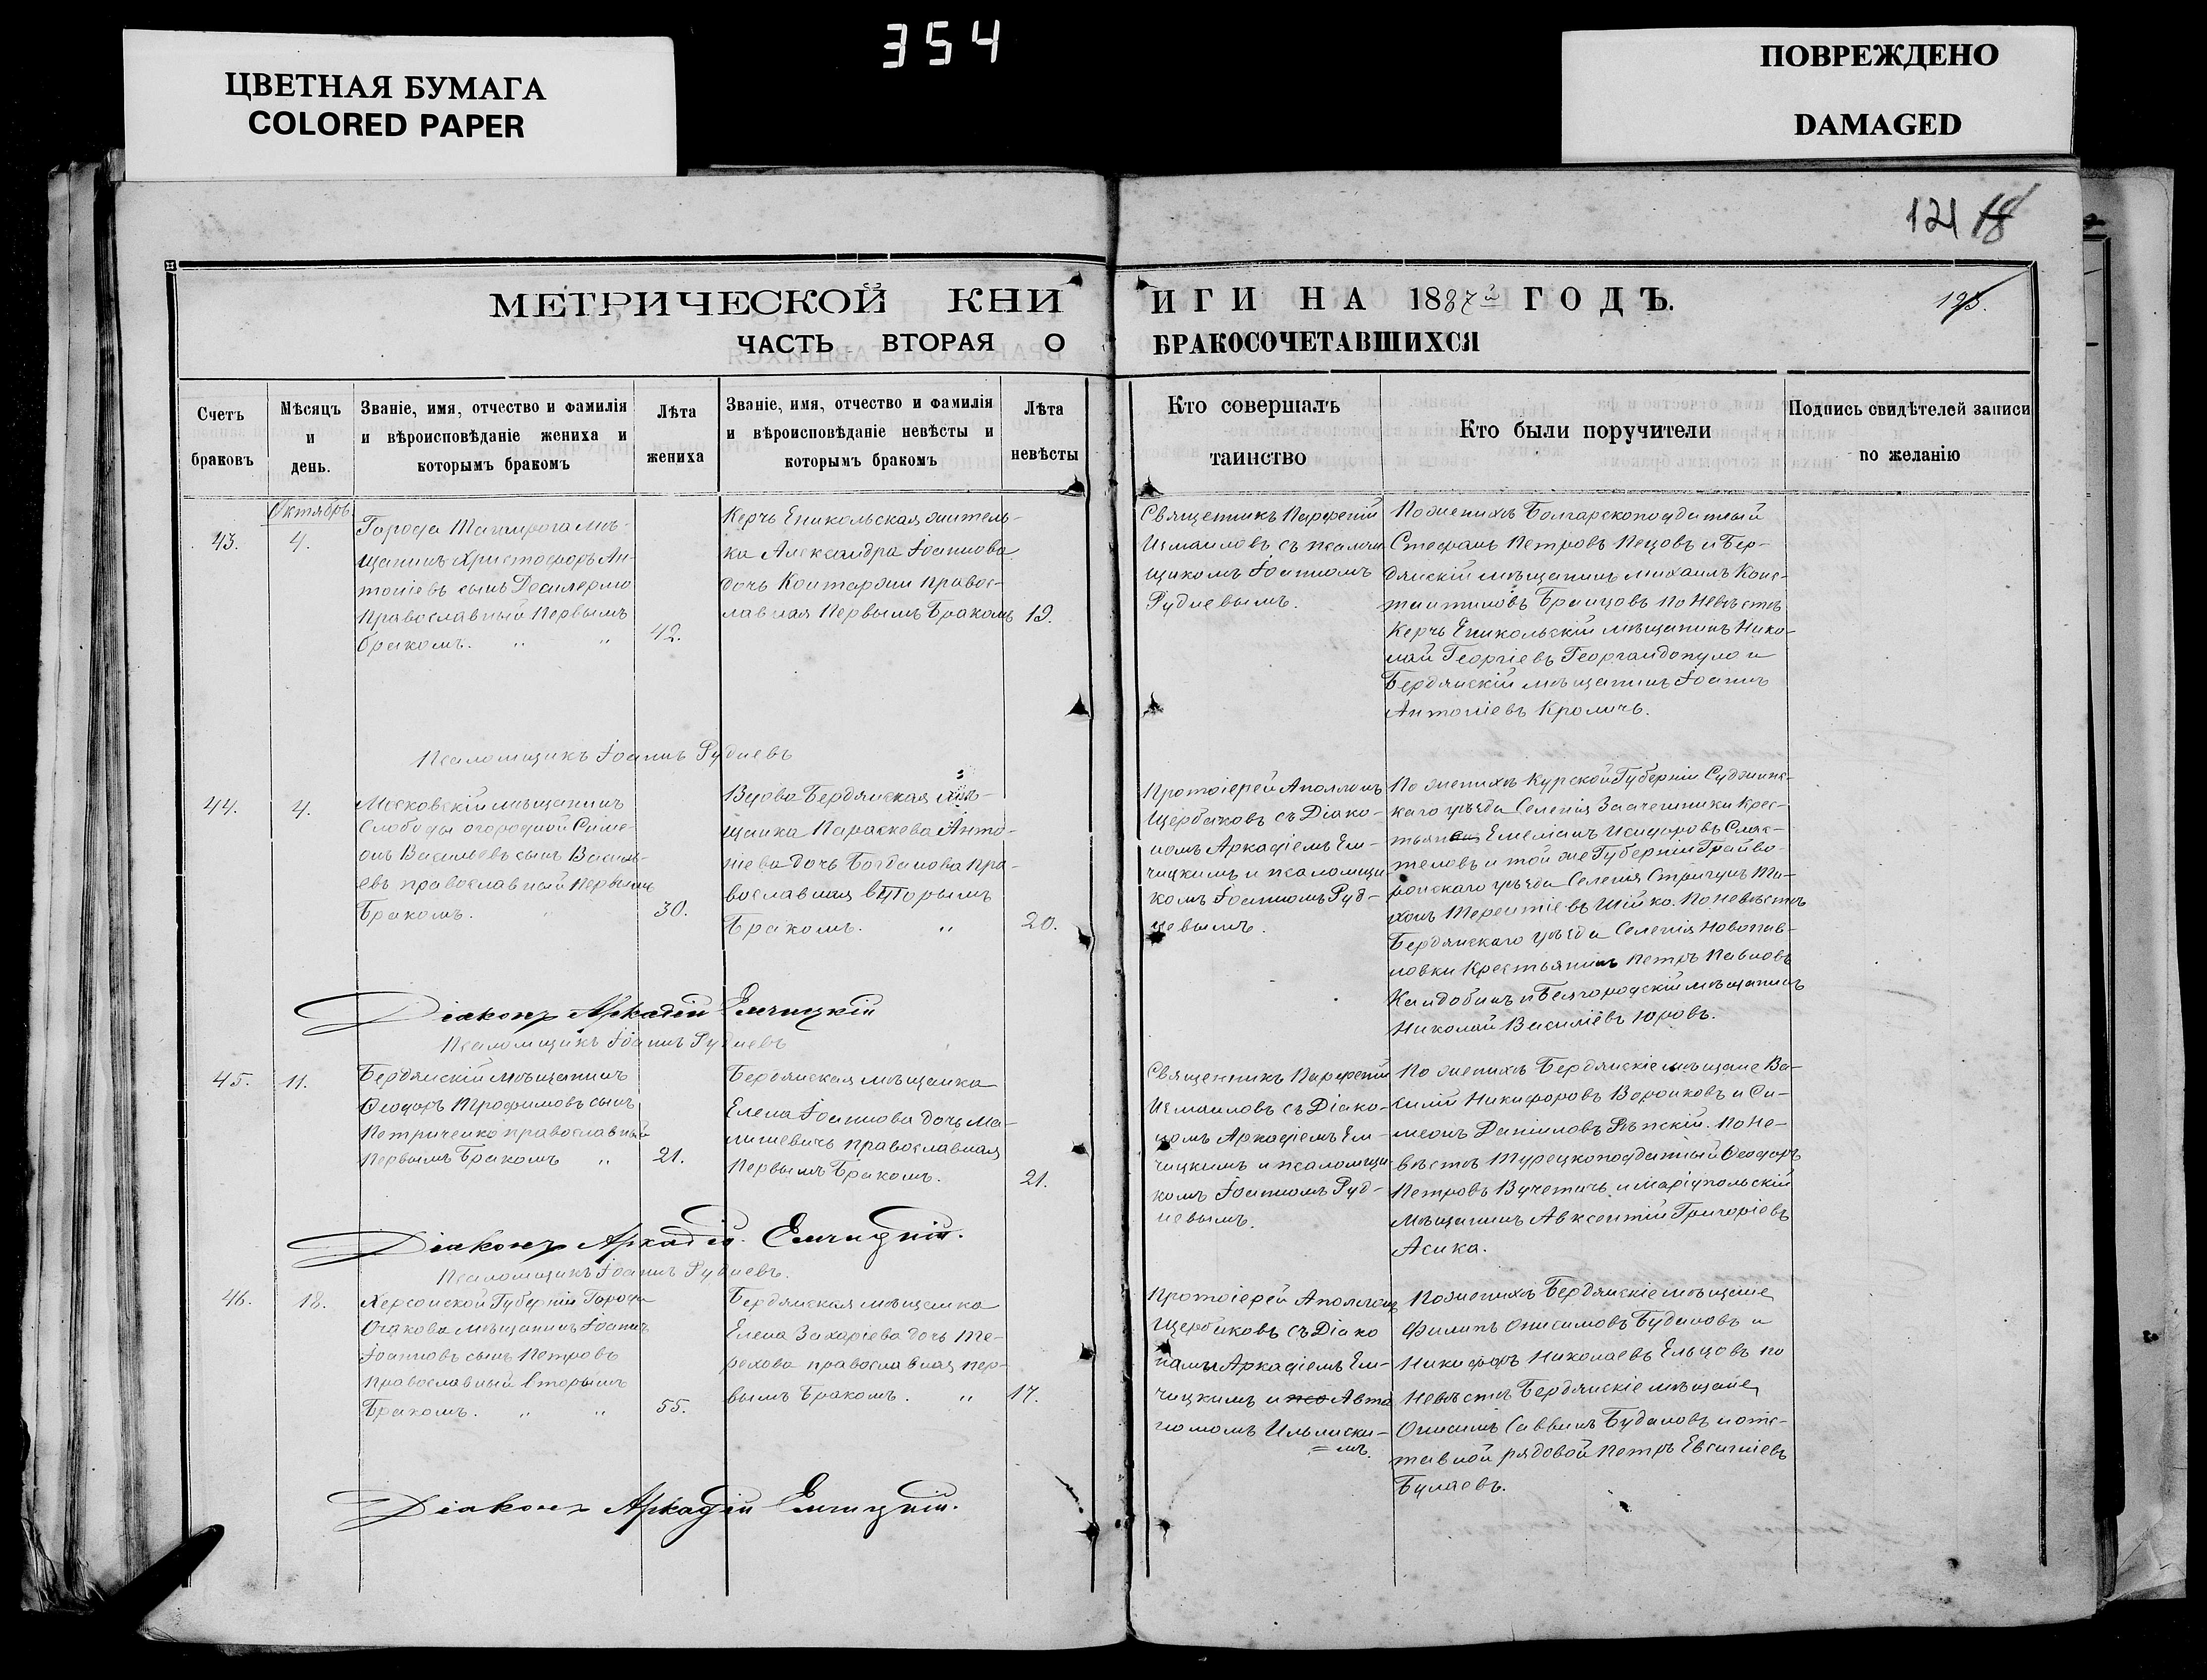 354
ЦВЕТНАЯ БУМАГА
COLORED PAPER
ПОВРЕЖДЕНО
DAMAGED
121 18
МЕТРИЧЕСКОЙ КНИ
ЧАСТЬ ВТОРАЯ О
ИГИ НА 1887й ГОДЪ.
195.
БРАКОСОЧЕТАВШИХСЯ
Счетъ
браковъ
Мѣсяцъ
и
день.
Званіе, имя, отчество и фамилія
и вѣроисповѣданіе жениха и
которымъ бракомъ
Лѣта
жениха
Званіе, имя, отчество и фамилія
и вѣроисповѣданіе невѣсты и
которымъ бракомъ
Лѣта
невѣсты
Кто совершалъ
таинство
Кто были поручители
Подпись свидѣтелей записи
по желанію
Октябрь
43.
4.
Города Таганрога мѣ-
щанинъ Христофоръ Ан-
тоніевъ сынъ
Православный Первымъ
бракомъ. " "
42.
Керчь Еникольская житель-
ка Александра Іоаннова
дочь Контаржи Правос-
лавная Первымъ Бракомъ
19.
Священникъ Парфеній
Исмаиловъ съ псалом
щикомъ Іоанномъ
Рудневымъ.
По женихѣ Болгарскоподданный
Стефанъ Петровъ Пецовъ и Бер-
дянскій мѣщанинъ Михаилъ Конс-
тантиновъ Бранцовъ По Невѣстѣ
Керчь Еникольскій мѣщанинъ Нико-
лай Георгіевъ Георгандопуло и
Бердянскій мѣщанинъ Іоаннъ
Антоніевъ Кроличъ.
Псаломщикъ Іоаннъ Рудневъ
44.
4.
Московскій мѣщанинъ
Слободы огородной Симе-
онъ Васильевъ сынъ Василь-
евъ православный Первымъ
Бракомъ. "
30.
Вдова Бердянская Мѣ-
щанка Параскева Анто-
ніева дочь Богданова Пра-
вославная вторымъ
Бракомъ. "
20.
Протоіерей Аполлонъ
Щербаковъ съ Діако-
номъ Аркадіемъ Ем-
чицкимъ и псаломщи
комъ Іоанномъ Руд-
невымъ.
По женихѣ Курской Губерніи Суджинс-
каго уѣзда Селенія Заачешники Крес-
тьян Емеліанъ Исидоровъ
теловъ и той же Губерніи Грайво-
ронскаго уѣзда Селенія Стригунъ Ти-
хонъ Терентіевъ Шійко. По невѣстѣ
Бердянскаго уѣзда Селенія Новопав-
ловки Крестьянинъ Петръ Павловъ
Калдобинъ и Белгородскій мѣщанинъ
Николай Василіевъ Юровъ.
Діаконъ Аркадій Емчицкій
Псаломщикъ Іоаннъ Рудневъ
45.
11.
Бердянскій мѣщанинъ
Ѳеодоръ Трофимовъ сынъ
Петриченко православный
Первымъ Бракомъ "
21.
Бердянская мѣщанка
Елена Іоаннова дочь Ма-
лишевичъ православная
Первымъ Бракомъ.
21.
Священникъ Парфеній
Исмаиловъ съ Діако-
номъ Аркадіемъ Ем-
чицкимъ и псаломщи-
комъ Іоанномъ Руд-
невымъ.
По женихѣ Бердянскіе мѣщане Ва-
силій Никифоровъ Воронковъ и Си-
меонъ Даніиловъ Рѣпскій. По Не-
вѣстѣ Турецкоподданный Ѳеодоръ
Петровъ Вучетичъ и Маріупольскій
Мѣщанинъ Авксентій Григоріевъ
Асика.
Діаконъ Аркадій Емчицкій.
Псаломщикъ Іоаннъ Рудневъ.
46.
18.
Херсонской Губерніи Города
Очакова мѣщанинъ Іоаннъ
Іоанновъ сынъ Петровъ
Православный вторымъ
Бракомъ. " "
55.
Бердянская мѣщанка
Елена Захаріева дочь Те-
рехова православная пер-
вымъ Бракомъ. "
17.
Протоіерей Аполлонъ
Щербаковъ съ Діако
номъ Аркадіемъ Ем-
чицкимъ и псо Авто
номомъ Ильински-
=мъ.
По женихѣ Бердянскіе мѣщане
Филипъ Онисимовъ Будановъ и
Никифоръ Николаевъ Ельцовъ по
Невѣстѣ Бердянскіе мѣщане
Онисимъ Саввинъ Будановъ и отс-
тавной рядовой Петръ Евсигніевъ
Булаевъ.
Діаконъ Аркадій Емчицкій.